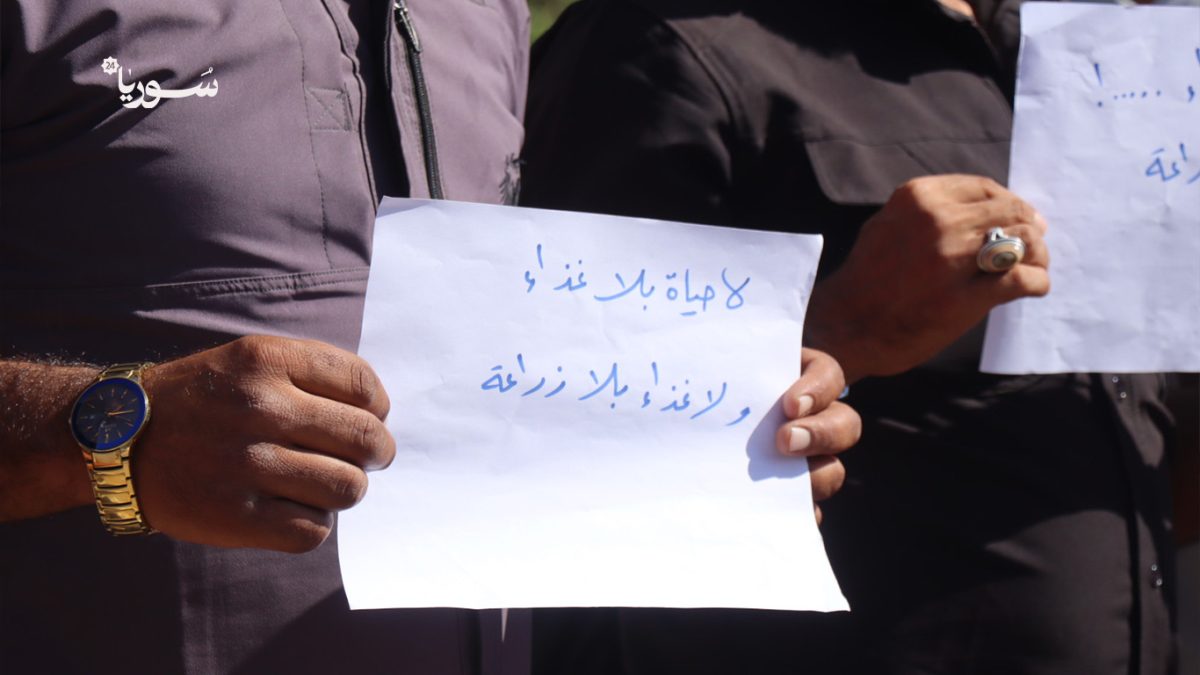 سوريا
24
لا حياة بلا غذاء
ولا غذاء بلا زراعة